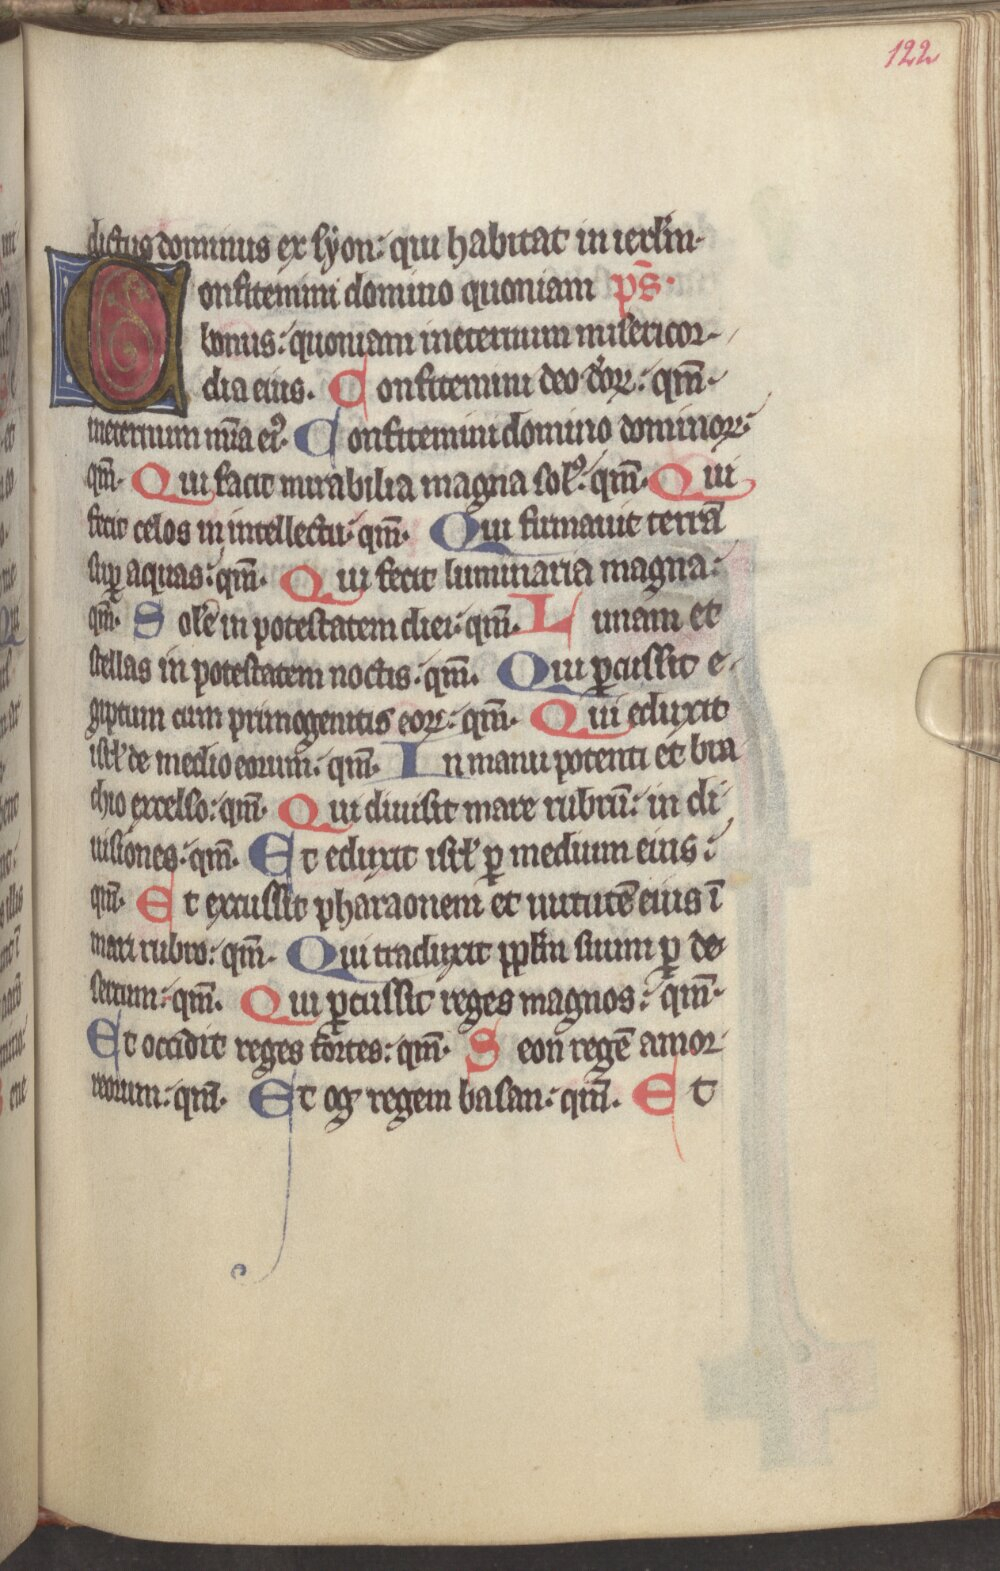 122
dictus dominus ex syon: qui habitat in ierłm.
Confitemini domino quoniam p̄s.
bonus: quoniam ineternum misericor-
dia eius. Confitemini deo deoꝝ: qm̄.
ineternum mīa ei᷒. Confitemini domino dominoꝝ:
qm̄. Qui facit mirabilia magna sol᷒: qm̄. Qui
fecit celos in intellectu: qm̄. Qui firmauit terrā
sup̱ aquas: qm̄. Qui fecit luminaria magna:
qm̄. Solē in potestatem diei: qm̄. Lunam et
stellas in potestatem noctis: qm̄. Qui ꝑcussit e-
giptum cum primogenitis eoꝝ: qm̄. Qui eduxit
isrł de medio eorum: qm̄. In manu potenti et bra
chio excelso: qm̄. Qui diuisit mare rubrū: in di
uisiones: qm̄. Et eduxit isrł ꝑ medium eius:
qm̄. Et excussit pharaonem et uirtutē eius ī
mari rubro: qm̄. Qui traduxit pplm̄ suum ꝑ de
sertum: qm̄. Qui ꝑcussit reges magnos: qm̄.
Et occidit reges fortes: qm̄. Seon regē amor
reorum: qm̄. Et og regem basan: qm̄. Et